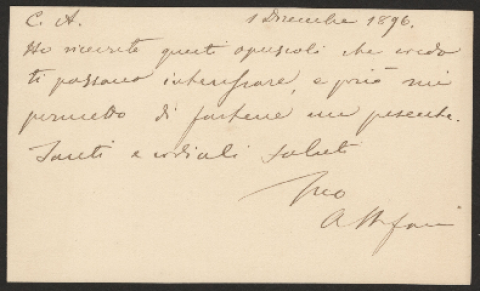 C. A. 1 Dicembre 1896.
Ho ricevuto questi opuscoli che credo
ti possano interessare, e perciò mi
permetto di fartene un presente.
Tanti e cordiali saluti
Tuo
A Stefani